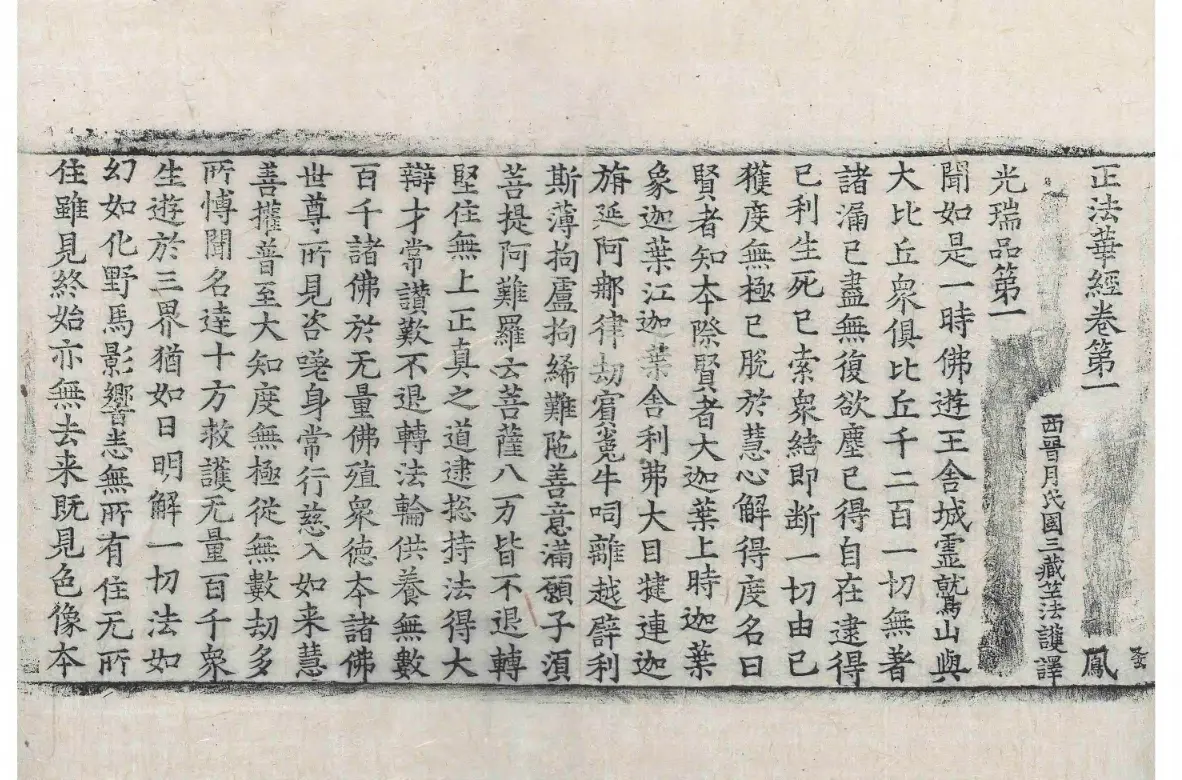 正法華經卷第一 鳳
西晉月氏國三藏竺法護譯
光瑞品第一
聞如是一時佛遊王舍城靈鷲山與
大比丘眾俱比丘千二百一切無著
諸漏已盡無復欲塵已得自在逮得
己利生死已索眾結即断一切由已
獲度無極已脱於慧心解得度名曰
賢者知本際賢者大迦葉上時迦葉
象迦葉江迦葉舍利弗大目揵連迦
旃延阿那律劫賓㝹牛呞離越譬利
斯薄拘盧拘絺難陁善意滿願子湏
菩提阿難羅云菩薩八万皆不退轉
堅住無上正真之道逮揔持法得大
辯才常讃歎不退轉法輪供養無數
百千諸佛於无量佛殖眾徳本諸佛
世尊所見咨嗟身常行慈入如来慧
善權普至大知度無極從無數劫多
所愽聞名達十方救護无量百千眾
生遊於三界猶如日明解一切法如
幻如化野馬影響悉無所有住无所
住雖見終始亦無去来既見色像本